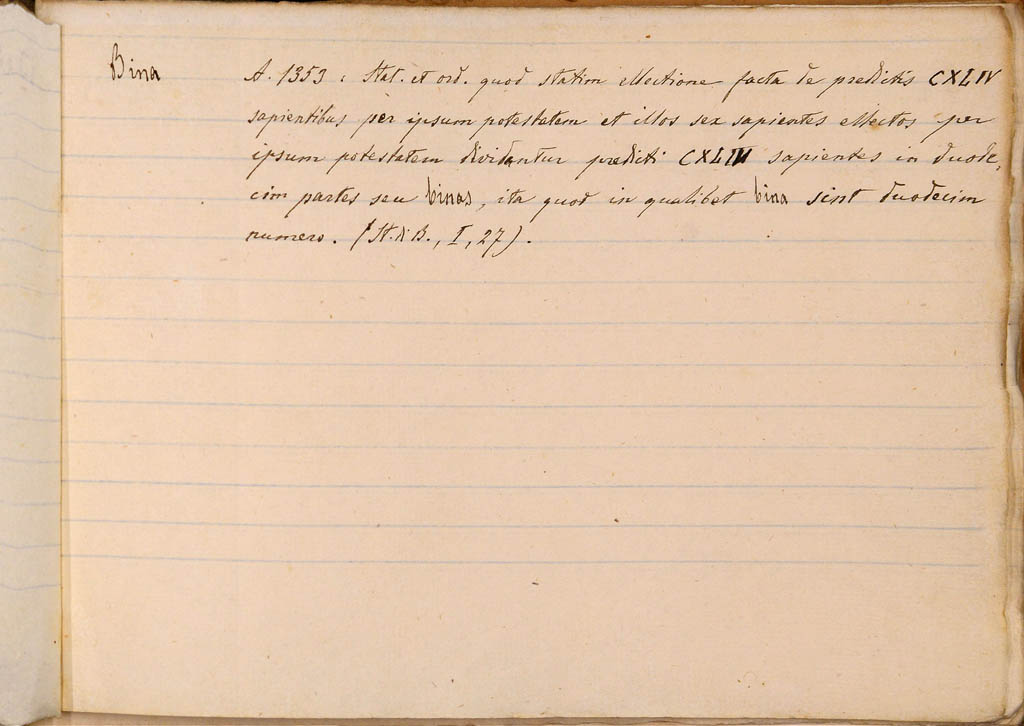 Bina
A. 1353 : Stat. et ord. quod statim ellectione facta de predictis CXLIV
sapientibus per ipsum potestatem et illos sex sapientes ellectos per
ipsum potestatem dividantur predicti CXLIV sapientes in duode,
cim partes seu binas, ita quod in qualibet bina sint duodecim
numero. (St. di B., I, 27).